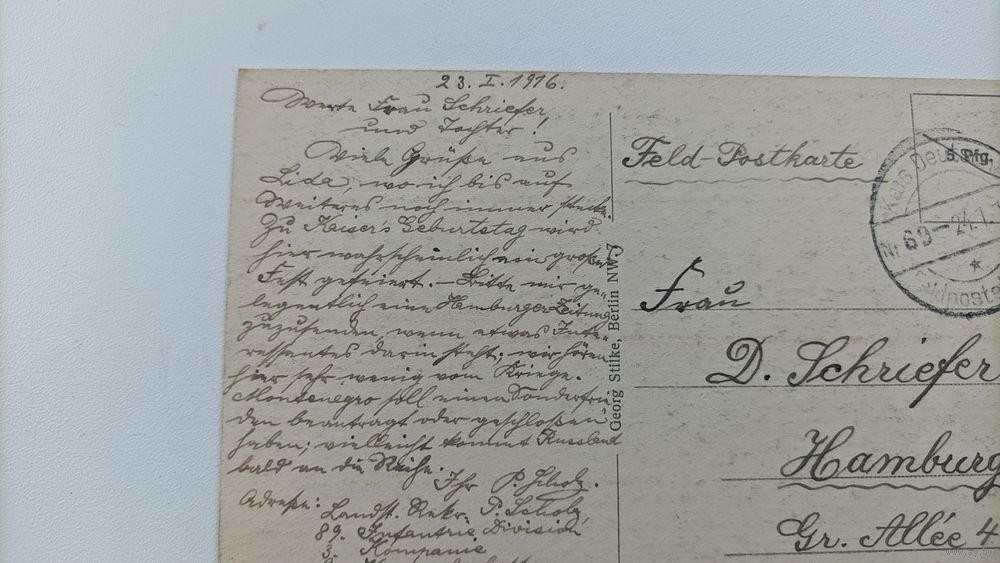 23. I. 1916.
Werte Frau Schriefer
und Tochter!
Viele Grüße aus
Lida, wo ich bis auf
Weiteres noch immer stecke.
Zu Kaiser's Geburtstag wird
hier wahrscheinlich ein großes
Fest gefeiert. — Bitte mir ge-
legentlich eine Hamburger Zeitung
zuzusenden, wenn etwas Inte-
ressantes darin steht; wir hören
hier sehr wenig vom Kriege.
Montenegro soll einen Sonderfrie-
den beantragt oder geschloßen
haben; vielleicht kommt Russland
bald an die Reihe.
Ihr P. Scholz.
Adreße: Landst. Rekr. P. Scholz,
89. Infantrie Division
3. Kompanie
Georg Stilke, Berlin NW 7
Feld-Postkarte
5 Pfg.
Nr. 69
24.1.
Frau
D. Schriefer
Hamburg
Gr. Allée 4